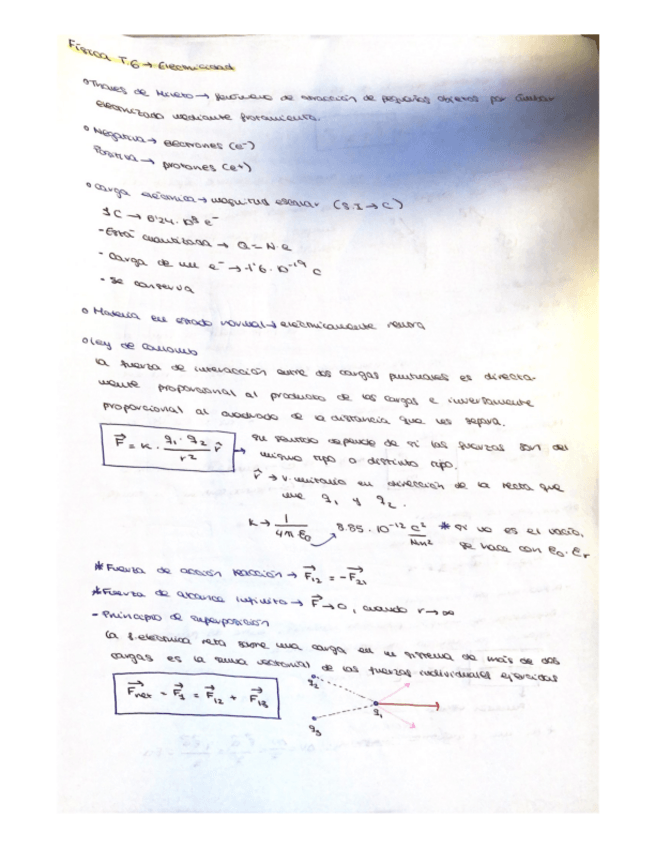 Física T.6 → Electricidad
° Thales de Mileto → fenómeno de atracción de pequeños objetos por ámbar
electrizado mediante frotamiento.
° Negativa → electrones (e⁻)
Positiva → protones (e+)
° Carga eléctrica → magnitud escalar (S.I → C)
1C → 6'24 · 10¹⁸ e⁻
- Está cuantizada → Q = N·e
- Carga de un e⁻ → -1'6 · 10⁻¹⁹ C
- Se conserva
° Materia en estado normal → eléctricamente neutra
° Ley de Coulomb
La fuerza de interacción entre dos cargas puntuales es directa-
mente proporcional al producto de las cargas e inversamente
proporcional al cuadrado de la distancia que les separa.
F⃗ = K · q₁ · q₂ / r² r̂ → su sentido depende de si las fuerzas son del
mismo tipo o distinto tipo.
r̂ → v. unitario en dirección de la recta que
une q₁ y q₂.
K → 1 / 4π ε₀ 8.85 · 10⁻¹² C² / Nm² * si no es el vacío,
se hace con ε₀ · εr
* Fuerza de acción reacción → F⃗₁₂ = -F⃗₂₁
* Fuerza de alcance infinito → F⃗ → 0, cuando r → ∞
- Principio de superposición
La f. eléctrica neta sobre una carga en un sistema de más de dos
cargas es la suma vectorial de las fuerzas individuales ejercidas
F⃗net = F⃗₁ = F⃗₁₂ + F⃗₁₃
q₂
q₁
q₃